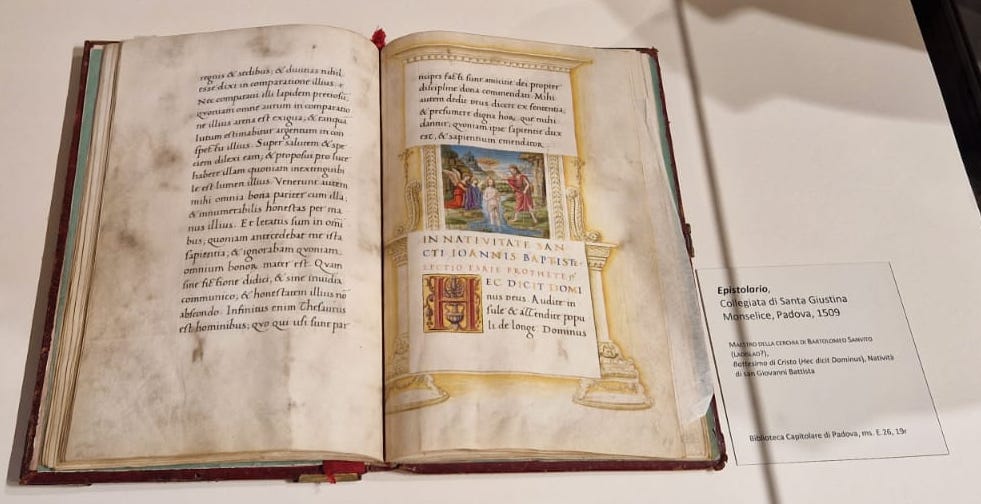 regnis & sedibus; & duitias nihil
esse dixi in comparatione illius.
Nec comparaui illi lapidem preciosũ;
quoniam omne aurum in comparatio
ne illius arena est exigua; & tanqua
lutum estimabitur argentum in con
spectu illius. Super salutem & spe
ciem dilexi eam; & proposui pro luce
habere illam quoniam inextinguibi
le est lumen illius. Venerunt autem
mihi omnia bona pariter cum illa;
& innumerabilis honestas per ma
nus illius. Et letatus sum in omi
bus; quoniam antecedebat me ista
sapientia; & ignorabam quoniam,
omnium bonor mater est. Quam
sine fictione didici, & sine inuidia
communico, & honestatem illius nõ
abscondo. Infinitus enim thesaurus
est hominibus; quo qui usi sunt par
ticipes facti sunt amicitie dei propter
discipline dona comendati. Mihi
autem dedit deus dicere ex sententia;
& presumere digna hor, que mihi
dantur; quoniam ipse sapientie dux
est, & sapientium emendator.
IN NATIVITATE SAN
CTI IOANNIS BAPTISTE.
LECTIO ESAIE PROPHETE
HEC DICIT DOMI
nus deus. Audite in
sule & attendite popu
li de longe. Dominus
Epistolario,
Collegiata di Santa Giustina
Monselice, Padova, 1509
MAESTRO DELLA CERCHIA DI BARTOLOMEO SANVITO
(LADISLAO?),
Battesimo di Cristo (Hec dicit Dominus), Natività
di san Giovanni Battista
Biblioteca Capitolare di Padova, ms. E.26, 19r